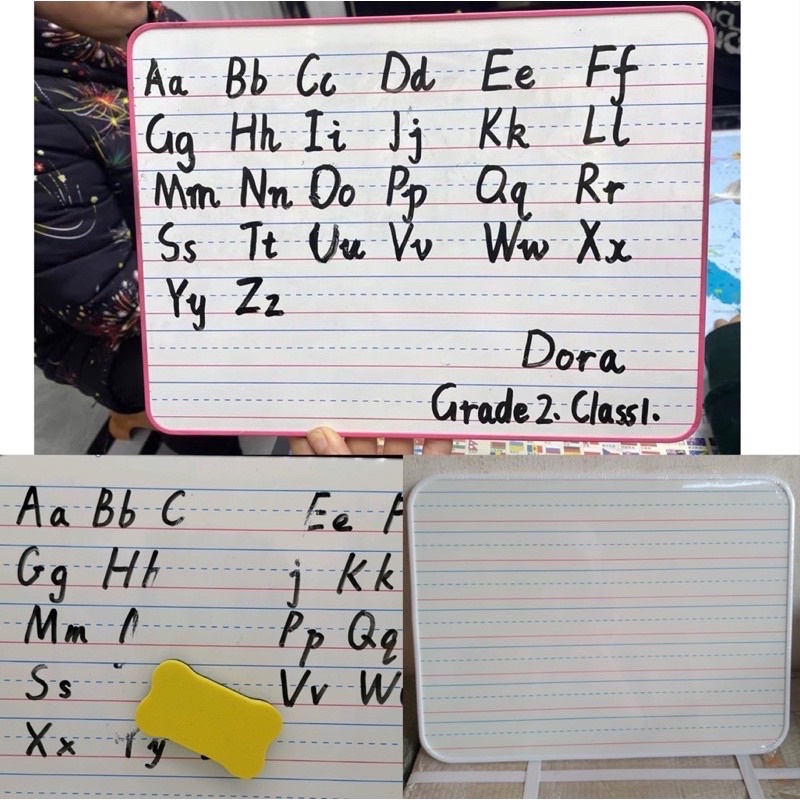 Aa Bb Cc Dd Ee Ff
Gg Hh Ii Jj Kk Ll
Mm Nn Oo Pp Qq Rr
Ss Tt Uu Vv Ww Xx
Yy Zz
Dora
Grade 2. Class 1.
Aa Bb C Ee F
Gg Hh j Kk
Mm Pp Qq
Ss Vv W
Xx Yy